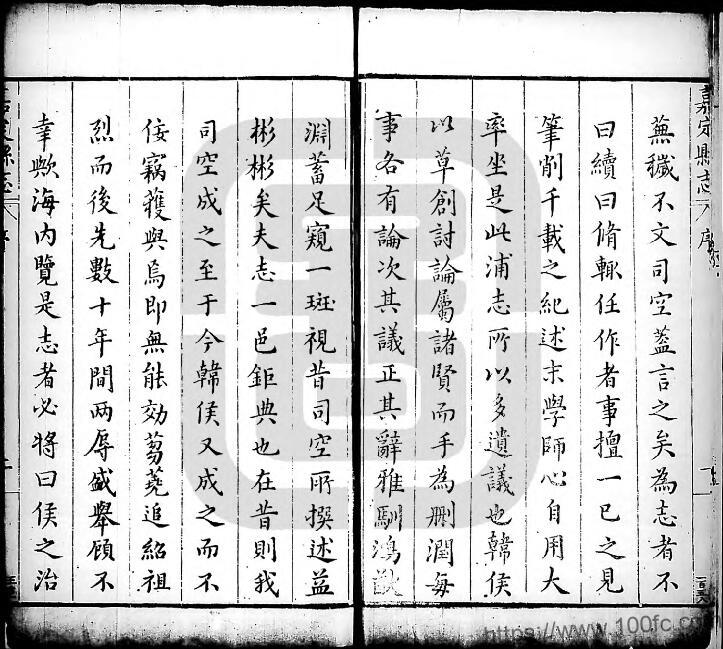 嘉定縣志 序
蕪穢不文司空蓋言之矣為志者不
曰續曰脩輙任作者事擅一已之見
筆削千載之紀述末學師心自用大
率坐是此浦志所以多遺議也韓侯
以草創討論屬諸賢而手為刪潤每
事各有論次其議正其辭雅馴鴻
淵蓄足窺一斑視昔司空所撰述益
彬彬矣夫志一邑鉅典也在昔則我
司空成之至于今韓侯又成之而不
佞竊獲與焉即無能効芻蕘追紹祖
烈而後先數十年間兩辱盛舉顧不
幸歟海內覽是志者必將曰侯之治
https://www.100fc.com